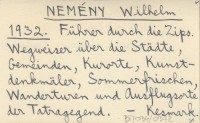 NEMÉNY Wilhelm
1932. Führer durch die Zips.
Wegweiser über die Städte,
Gemeinden, Kurorte, Kunst-
denkmäler, Sommerfrischen,
Wanderturen und Ausflugsorte
der Tatragegend. - Kesmark.